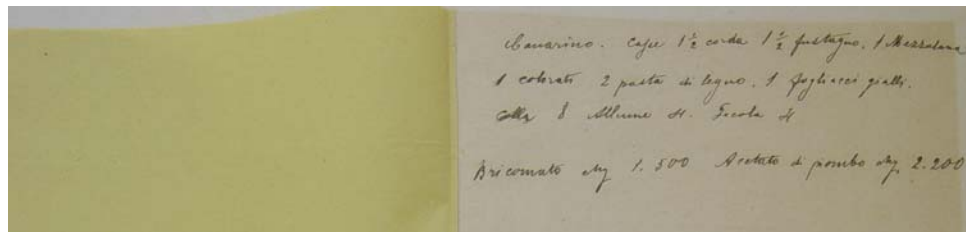 Canarino. Casse 1½ corda 1½ fustagno, 1 Mezzalana
1 colorati 2 pasta di legno. 1 fogliacci gialli.
Colla 8 Allume 4. Fecola 4
Bricomato Kg 1.500 Acetato di piombo Kg 2.200